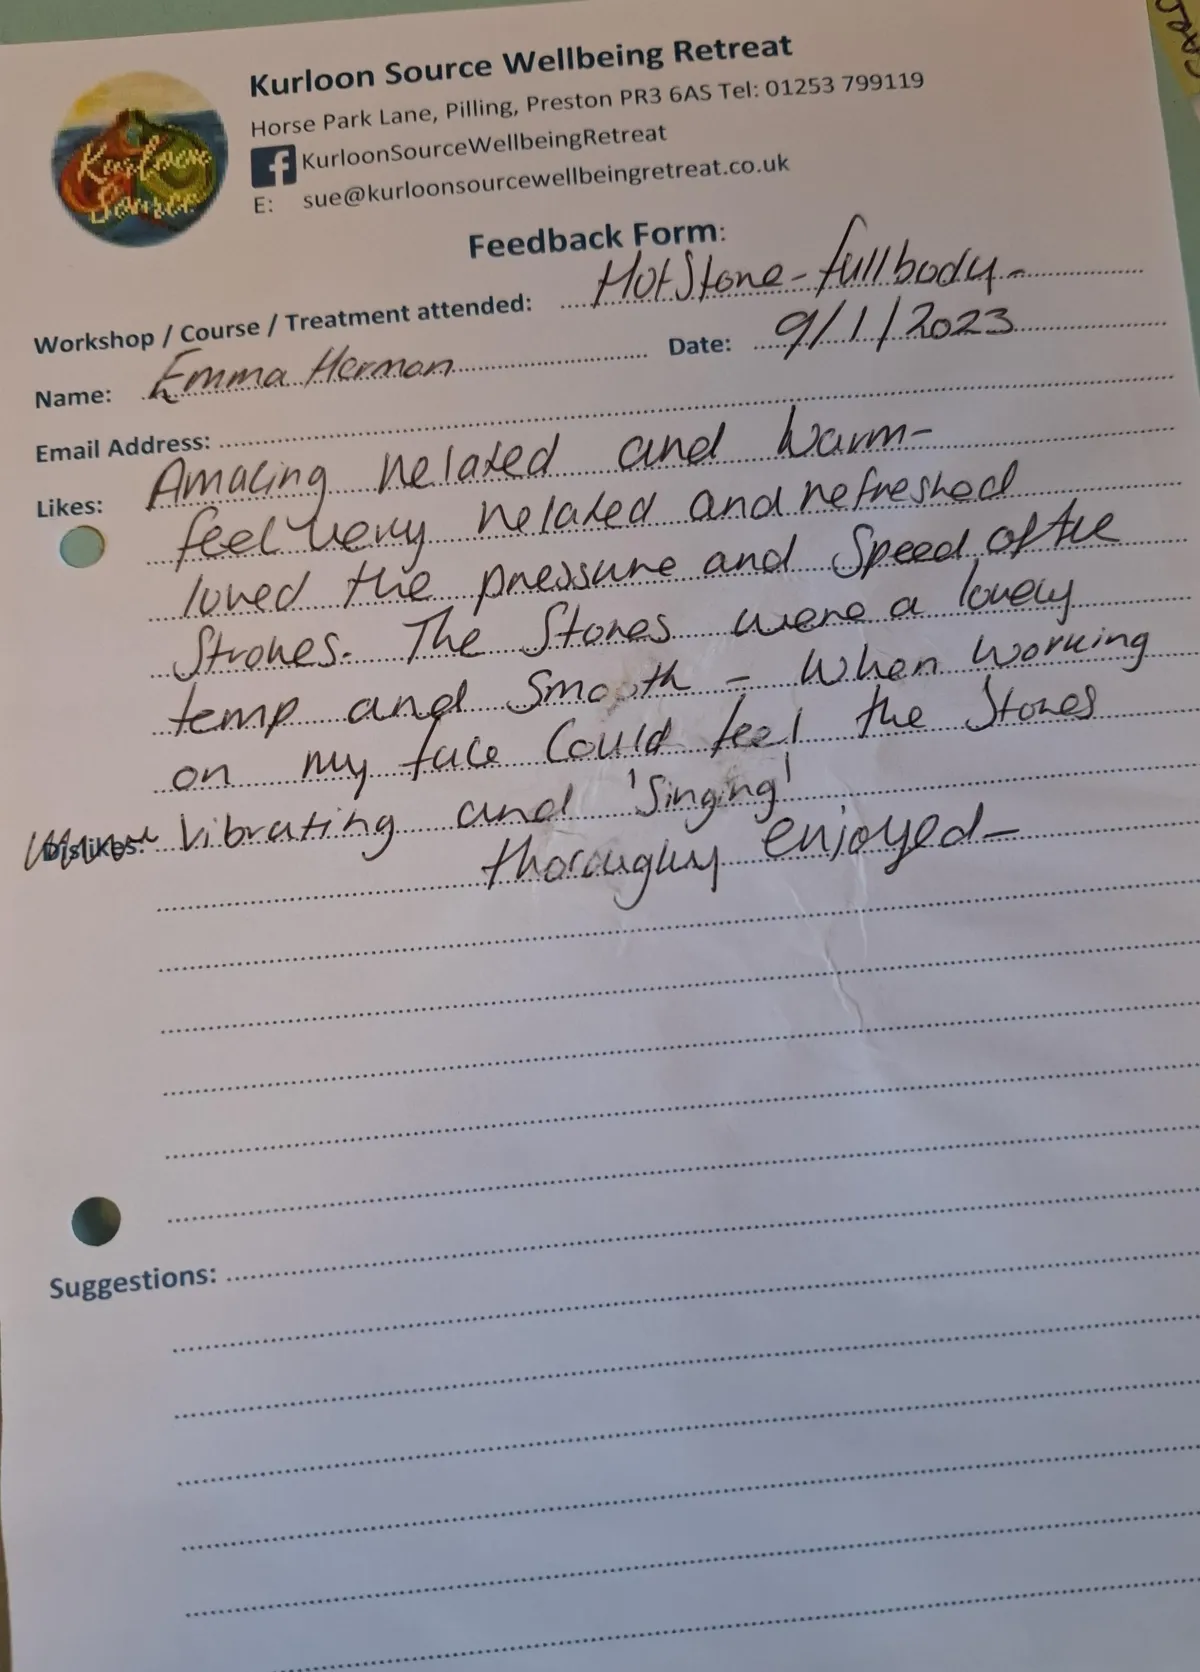 Kurloon Source
Kurloon Source Wellbeing Retreat
Horse Park Lane, Pilling, Preston PR3 6AS Tel: 01253 799119
f KurloonSourceWellbeingRetreat
E: sue@kurloonsourcewellbeingretreat.co.uk
Feedback Form:
Workshop / Course / Treatment attended: Hot Stone - full body -
Name: Emma Herman Date: 9/1/2023
Email Address:
Likes: Amazing relaxed and warm -
feel very relaxed and refreshed
loved the pressure and speed of the
strokes. The Stones were a lovely
temp and smooth - when working
on my face could feel the Stones
Dislikes: vibrating and 'singing'
thoroughly enjoyed -
Suggestions: